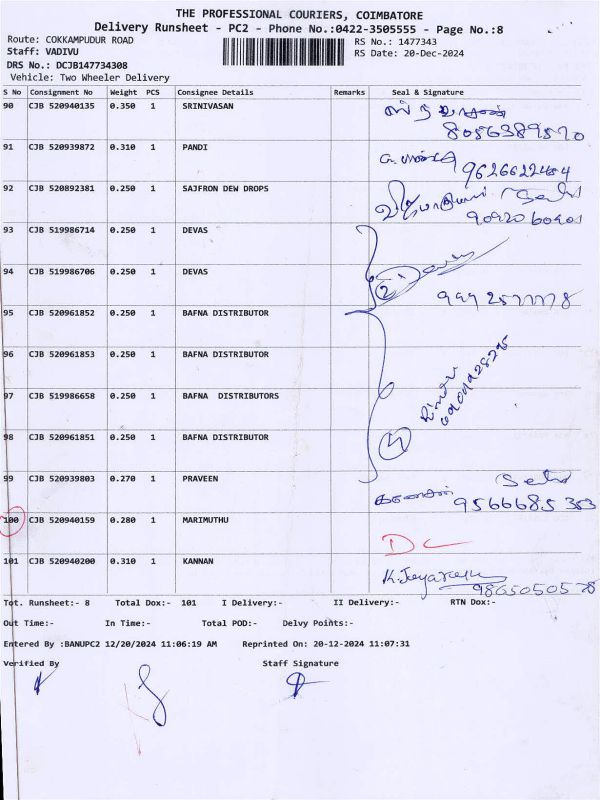 THE PROFESSIONAL COURIERS, COIMBATORE
Delivery Runsheet - PC2 - Phone No.:0422-3505555 - Page No.:8
Route: COKKAMPUDUR ROAD RS No.: 1477343
Staff: VADIVU RS Date: 20-Dec-2024
DRS No.: DCJB147734308
Vehicle: Two Wheeler Delivery
S No Consignment No Weight PCS Consignee Details Remarks Seal & Signature
90 CJB 520940135 0.350 1 SRINIVASAN
8056389570
91 CJB 520939872 0.310 1 PANDI
9626622484
92 CJB 520892381 0.250 1 SAJFRON DEW DROPS
93 CJB 519986714 0.250 1 DEVAS
94 CJB 519986706 0.250 1 DEVAS
2
95 CJB 520961852 0.250 1 BAFNA DISTRIBUTOR
96 CJB 520961853 0.250 1 BAFNA DISTRIBUTOR
97 CJB 519986658 0.250 1 BAFNA DISTRIBUTORS
98 CJB 520961851 0.250 1 BAFNA DISTRIBUTOR
4
99 CJB 520939803 0.270 1 PRAVEEN
9566685353
100 CJB 520940159 0.280 1 MARIMUTHU
DC
101 CJB 520940200 0.310 1 KANNAN
9865050578
Tot. Runsheet:- 8 Total Dox:- 101 I Delivery:- II Delivery:- RTN Dox:-
Out Time:- In Time:- Total POD:- Delvy Points:-
Entered By :BANUPC2 12/20/2024 11:06:19 AM Reprinted On: 20-12-2024 11:07:31
Verified By Staff Signature